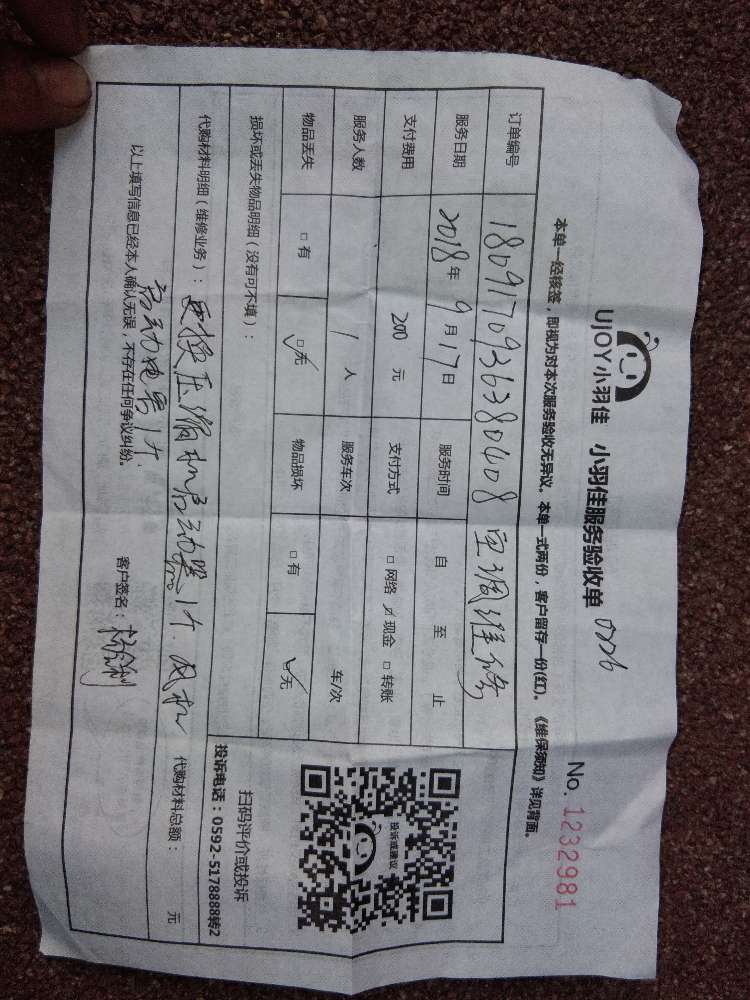 UJOY小羽佳 小羽佳服务验收单
No. 1232981
本单一经核签，即视为对本次服务验收无异议。本单一式两份，客户留存一份(红)。《维保须知》详见背面。
订单编号 18091709363380408 空调维修
服务日期 2018年 9月17日 服务时间 自 至 止
支付费用 200 元 支付方式 □网络 ☑现金 □转账
服务人数 1 人 服务车次 车/次
物品丢失 □有 ☑无 物品损坏 □有 ☑无
损坏或丢失物品明细（没有可不填）：
扫码评价或投诉
投诉电话：0592-5178888转2
投诉或建议
代购材料明细（维修业务）：更换压缩机启动器1个. 风机
启动电容1个.
代购材料总额： 元
以上填写信息已经本人确认无误，不存在任何争议纠纷。 客户签名：